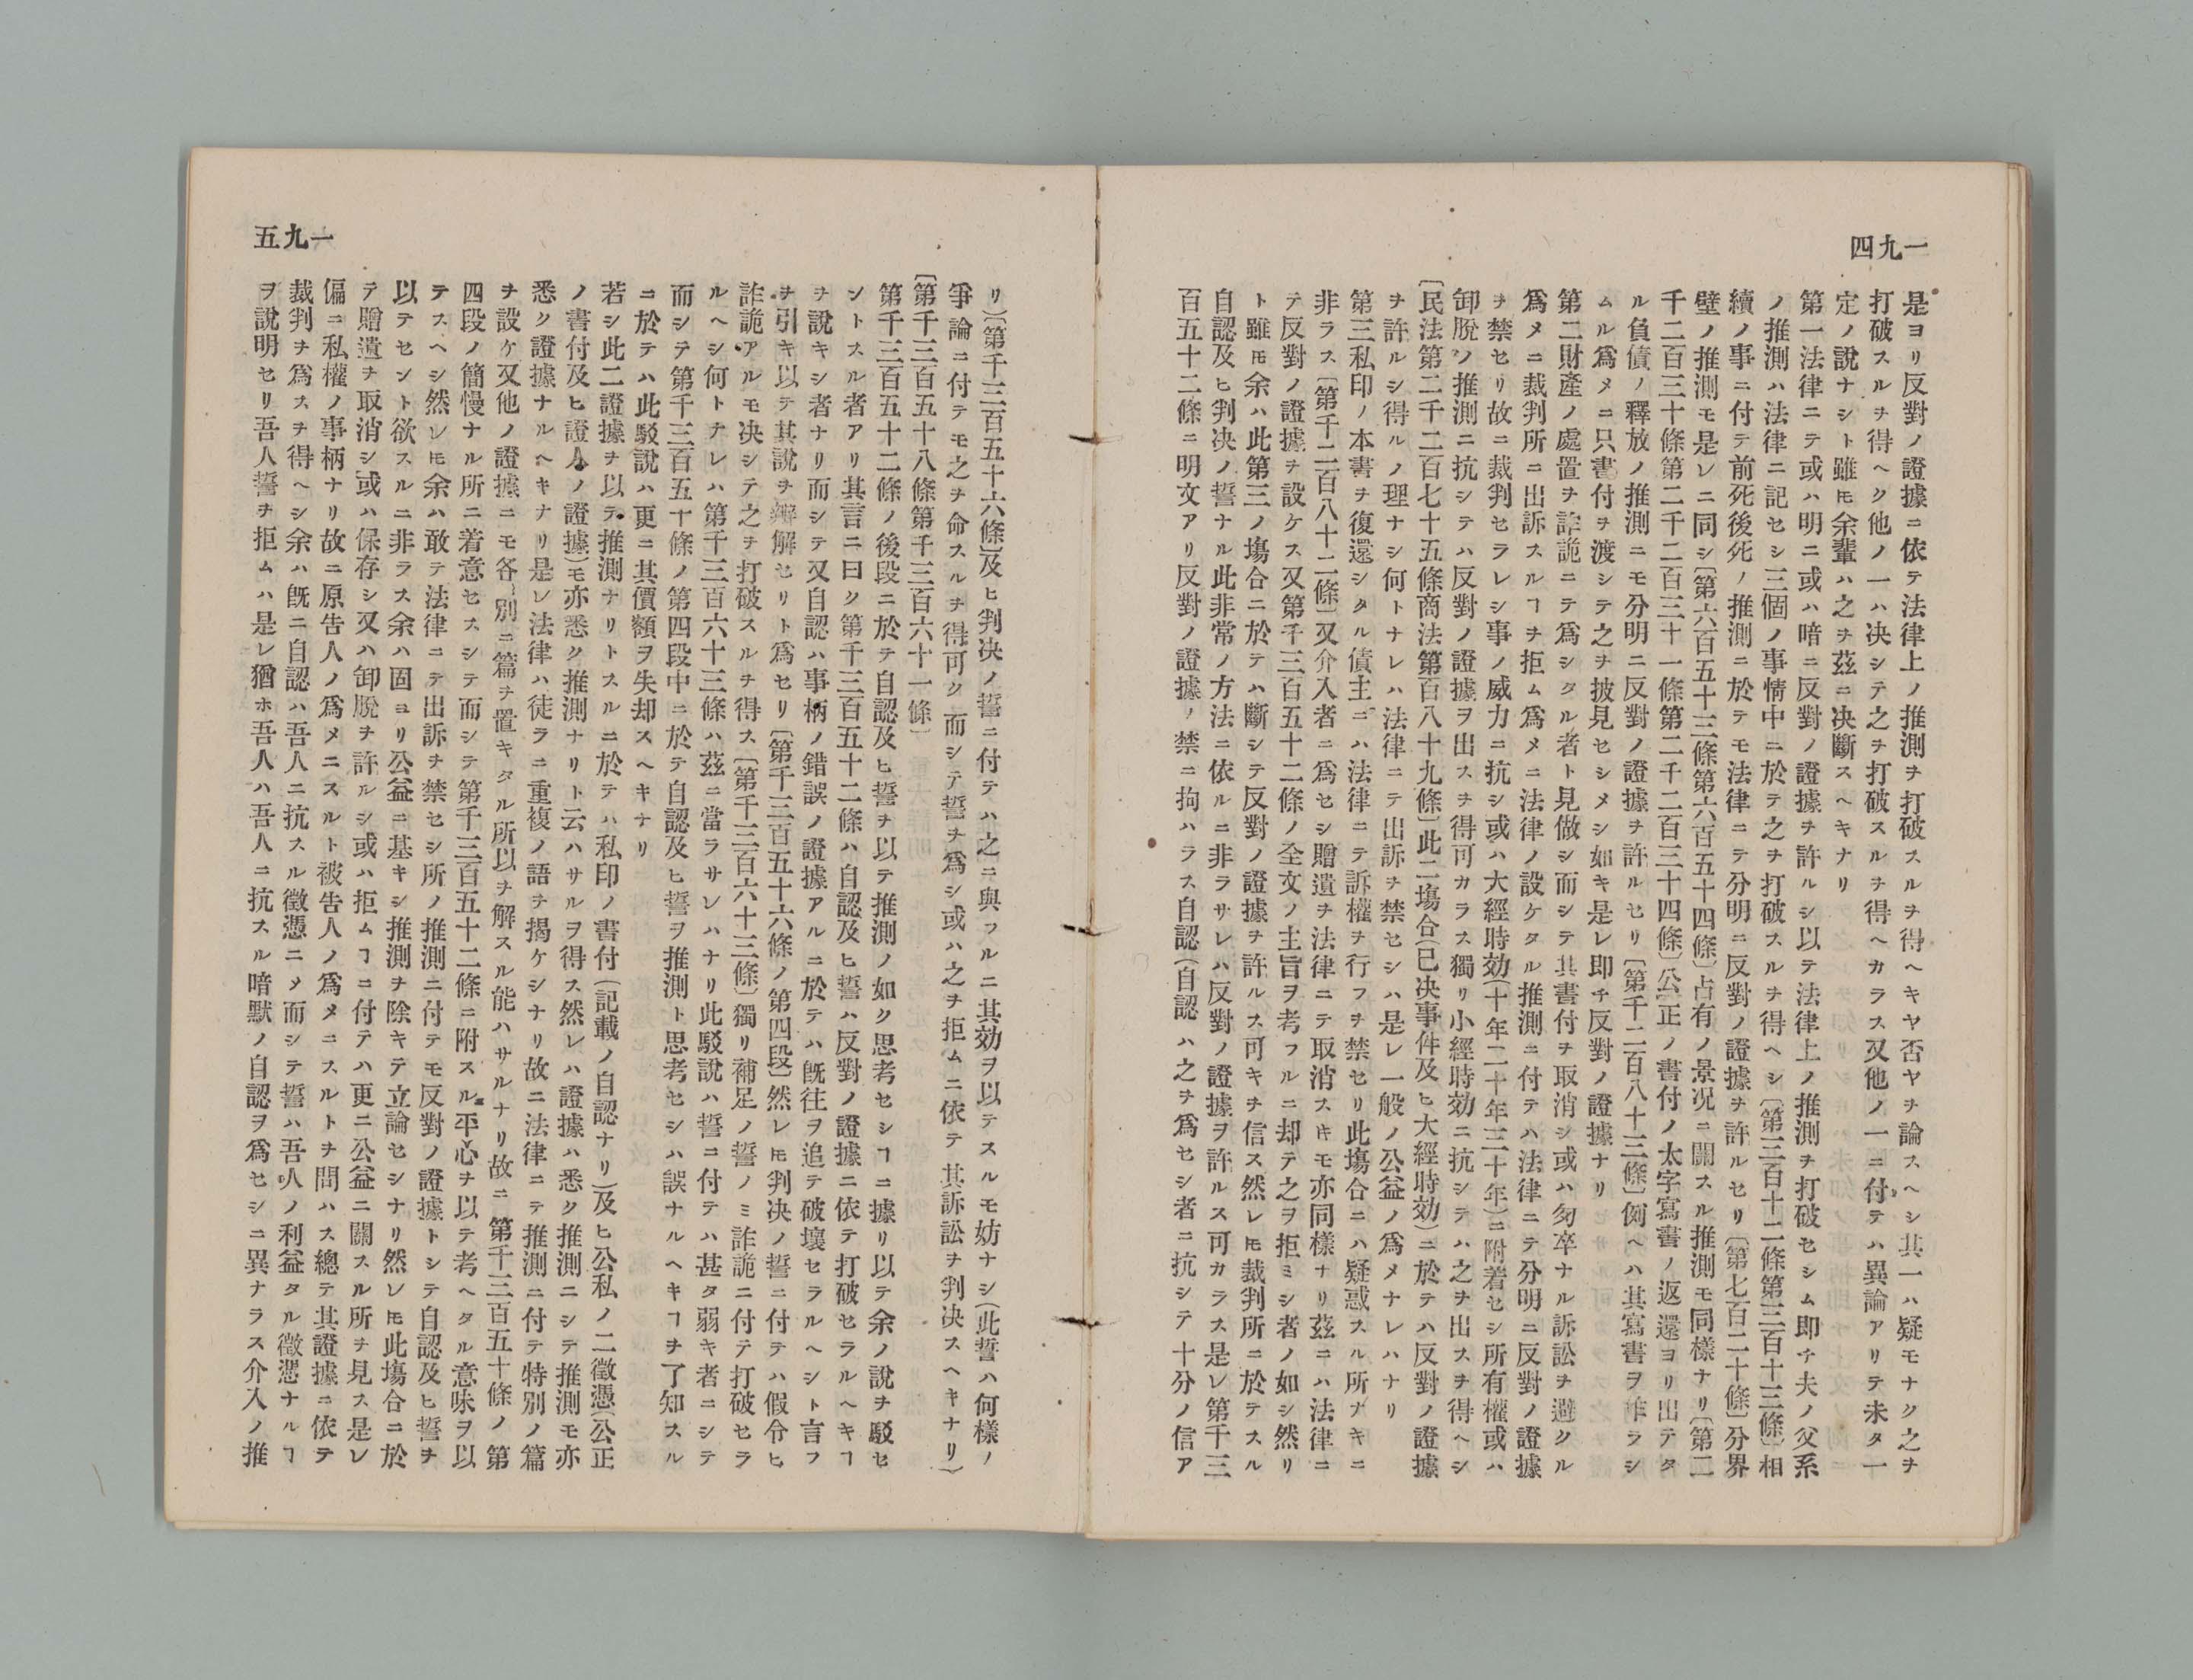 一九四
是ヨリ反對ノ證據ニ依テ法律上ノ推測ヲ打破スルヲ得ヘキヤ否ヤヲ論スヘシ其一ハ疑モナク之ヲ
打破スルヲ得ヘク他ノ一ハ决シテ之ヲ打破スルヲ得ヘカラス又他ノ一ニ付テハ異論アリテ未タ一
定ノ說ナシト雖𪜈余輩ハ之ヲ茲ニ决斷スヘキナリ
第一法律ニテ或ハ明ニ或ハ暗ニ反對ノ證據ヲ許ルシ以テ法律上ノ推測ヲ打破セシム即チ夫ノ父系
ノ推測ハ法律ニ記セシ三個ノ事情中ニ於テ之ヲ打破スルヲ得ヘシ〔第三百十二條第三百十三條〕相
續ノ事ニ付テ前死後死ノ推測ニ於テモ法律ニテ分明ニ反對ノ證據ヲ許ルセリ〔第七百二十條〕分界
壁ノ推測モ是レニ同シ〔第六百五十三條第六百五十四條〕占有ノ景况ニ關スル推測モ同樣ナリ〔第二
千二百三十條第二千二百三十一條第二千二百三十四條〕公正ノ書付ノ太字寫書ノ返還ヨリ出テタ
ル負債ノ釋放ノ推測ニモ分明ニ反對ノ證據ヲ許ルセリ〔第千二百八十三條〕例ヘハ其寫書ヲ作ラシ
ムル爲メニ只書付ヲ渡シテ之ヲ披見セシメシ如キ是レ即チ反對ノ證據ナリ
第二財產ノ處置ヲ詐詭ニテ爲シタル者ト見做シ而シテ其書付ヲ取消シ或ハ匆卒ナル訴訟ヲ避クル
爲メニ裁判所ニ出訴スルヿヲ拒ム爲メニ法律ノ設ケタル推測ニ付テハ法律ニテ分明ニ反對ノ證據
ヲ禁セリ故ニ裁判セラレシ事ノ威力ニ抗シ或ハ大經時効(十年二十年三十年)ニ附着セシ所有權或ハ
卸脫ノ推測ニ抗シテハ反對ノ證據ヲ出スヲ得可カラス獨リ小經時効ニ抗シテハ之ヲ出スヲ得ヘシ
〔民法第二千二百七十五條商法第百八十九條〕此二塲合(已决事件及ヒ大經時効)ニ於テハ反對ノ證據
ヲ許ルシ得ルノ理ナシ何トナレハ法律ニテ出訴ヲ禁セシハ是レ一般ノ公益ノ爲メナレハナリ
第三私印ノ本書ヲ復還シタル債主ニハ法律ニテ訴權ヲ行フヲ禁セリ此塲合ニハ疑惑スル所ナキニ
非ラス〔第千二百八十二條〕又介入者ニ爲セシ贈遺ヲ法律ニテ取消スキモ亦同樣ナリ茲ニハ法律ニ
テ反對ノ證據ヲ設ケス又第千三百五十二條ノ全文ノ主旨ヲ考フルニ却テ之ヲ拒ミシ者ノ如シ然リ
ト雖𪜈余ハ此第三ノ塲合ニ於テハ斷シテ反對ノ證據ヲ許ルス可キヲ信ス然レ𪜈裁判所ニ於テスル
自認及ヒ判决ノ誓ナル此非常ノ方法ニ依ルニ非ラサレハ反對ノ證據ヲ許ルス可カラス是レ第千三
百五十二條ニ明文アリ反對ノ證據ノ禁ニ拘ハラス自認(自認ハ之ヲ爲セシ者ニ抗シテ十分ノ信ア
一九五
リ)〔第千三百五十六條〕及ヒ判决ノ誓ニ付テハ之ニ與フルニ其効ヲ以テスルモ妨ナシ(此誓ハ何樣ノ
爭論ニ付テモ之ヲ命スルヲ得可ク而シテ誓ヲ爲シ或ハ之ヲ拒ムニ依テ其訴訟ヲ判决スヘキナリ)
〔第千三百五十八條第千三百六十一條〕
第千三百五十二條ノ後段ニ於テ自認及ヒ誓ヲ以テ推測ノ如ク思考セシヿニ據リ以テ余ノ說ヲ駁セ
ントスル者アリ其言ニ曰ク第千三百五十二條ハ自認及ヒ誓ハ反對ノ證據ニ依テ打破セラルヘキヿ
ヲ說キシ者ナリ而シテ又自認ハ事柄ノ錯誤ノ證據アルニ於テハ既往ヲ追テ破壞セラルヘシト言フ
ヲ引キ以テ其說ヲ辯解セリト爲セリ〔第千三百五十六條ノ第四段〕然レ𪜈判决ノ誓ニ付テハ假令ヒ
詐詭アルモ决シテ之ヲ打破スルヲ得ス〔第千三百六十三條〕獨リ補足ノ誓ノミ詐詭ニ付テ打破セラ
ルヘシ何トナレハ第千三百六十三條ハ茲ニ當ラサレハナリ此駁說ハ誓ニ付テハ甚タ弱キ者ニシテ
而シテ第千三百五十條ノ第四段中ニ於テ自認及ヒ誓ヲ推測ト思考セシハ誤ナルヘキヿヲ了知スル
ニ於テハ此駁說ハ更ニ其價額ヲ失却スヘキナリ
若シ此二證據ヲ以テ推測ナリトスルニ於テハ私印ノ書付(記載ノ自認ナリ)及ヒ公私ノ二徵憑(公正
ノ書付及ヒ證人ノ證據)モ亦悉ク推測ナリト云ハサルヲ得ス然レハ證據ハ悉ク推測ニシテ推測モ亦
悉ク證據ナルヘキナリ是レ法律ハ徒ラニ重複ノ語ヲ揭ケシナリ故ニ法律ニテ推測ニ付テ特別ノ篇
ヲ設ケ又他ノ證據ニモ各〻別ニ篇ヲ置キタル所以ヲ解スル能ハサルナリ故ニ第千三百五十條ノ第
四段ノ簡慢ナル所ニ着意セスシテ而シテ第千三百五十二條ニ附スル平心ヲ以テ考ヘタル意味ヲ以
テスヘシ然レ𪜈余ハ敢テ法律ニテ出訴ヲ禁セシ所ノ推測ニ付テモ反對ノ證據トシテ自認及ヒ誓ヲ
以テセント欲スルニ非ラス余ハ固ヨリ公益ニ基キシ推測ヲ除キテ立論セシナリ然レ𪜈此塲合ニ於
テ贈遺ヲ取消シ或ハ保存シ又ハ卸脫ヲ許ルシ或ハ拒ムヿニ付テハ更ニ公益ニ關スル所ヲ見ス是レ
偏ニ私權ノ事柄ナリ故ニ原告人ノ爲メニスルト被告人ノ爲メニスルトヲ問ハス總テ其證據ニ依テ
裁判ヲ爲スヲ得ヘシ余ハ既ニ自認ハ吾人ニ抗スル徵憑ニメ而シテ誓ハ吾人ノ利益タル徵憑ナルヿ
ヲ說明セリ吾人誓ヲ拒ムハ是レ猶ホ吾人ハ吾人ニ抗スル暗默ノ自認ヲ爲セシニ異ナラス介入ノ推